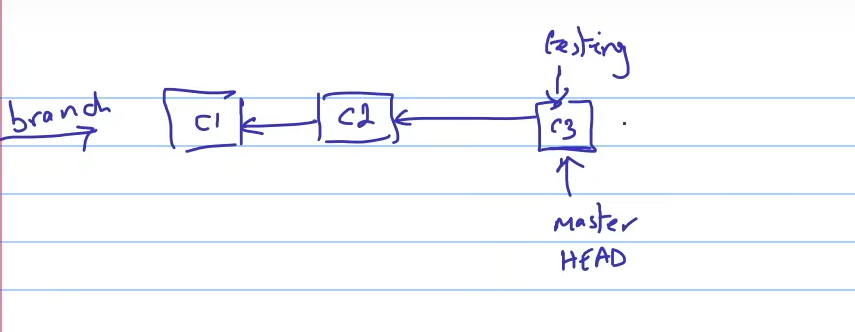 testing
branch
C1
C2
C3
master
HEAD